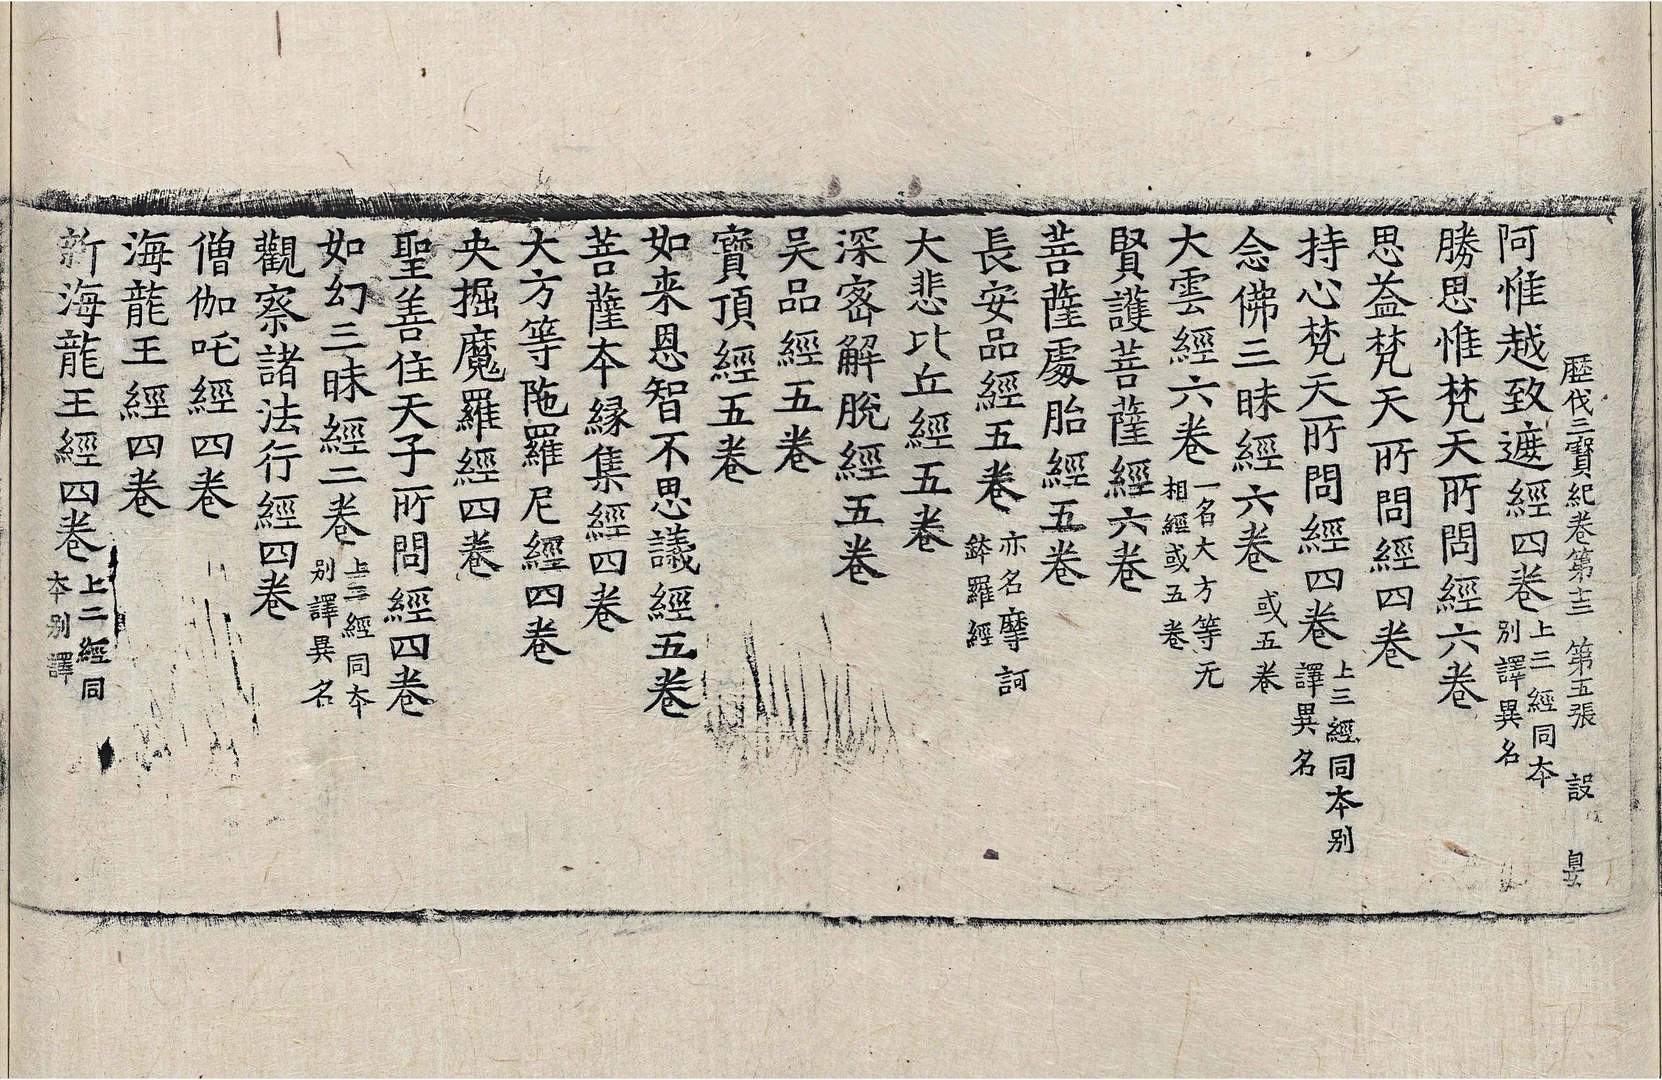 歷代三寶紀卷第十三 第五張 設
阿惟越致遮經四卷 上三經同本別譯異名
勝思惟梵天所問經六卷
思益梵天所問經四卷
持心梵天所問經四卷 上三經同本別譯異名
念佛三昧經六卷 或五卷
大雲經六卷 一名大方等无相經或五卷
賢護菩薩經六卷
菩薩處胎經五卷
長安品經五卷 亦名摩訶鉢羅經
大悲比丘經五卷
深密解脫經五卷
吳品經五卷
寶頂經五卷
如来恩智不思議經五卷
菩薩本緣集經四卷
大方等陁羅尼經四卷
央掘魔羅經四卷
聖善住天子所問經四卷
如幻三昧經二卷 上三經同本別譯異名
觀察諸法行經四卷
僧伽吒經四卷
海龍王經四卷
新海龍王經四卷 上二經同本別譯